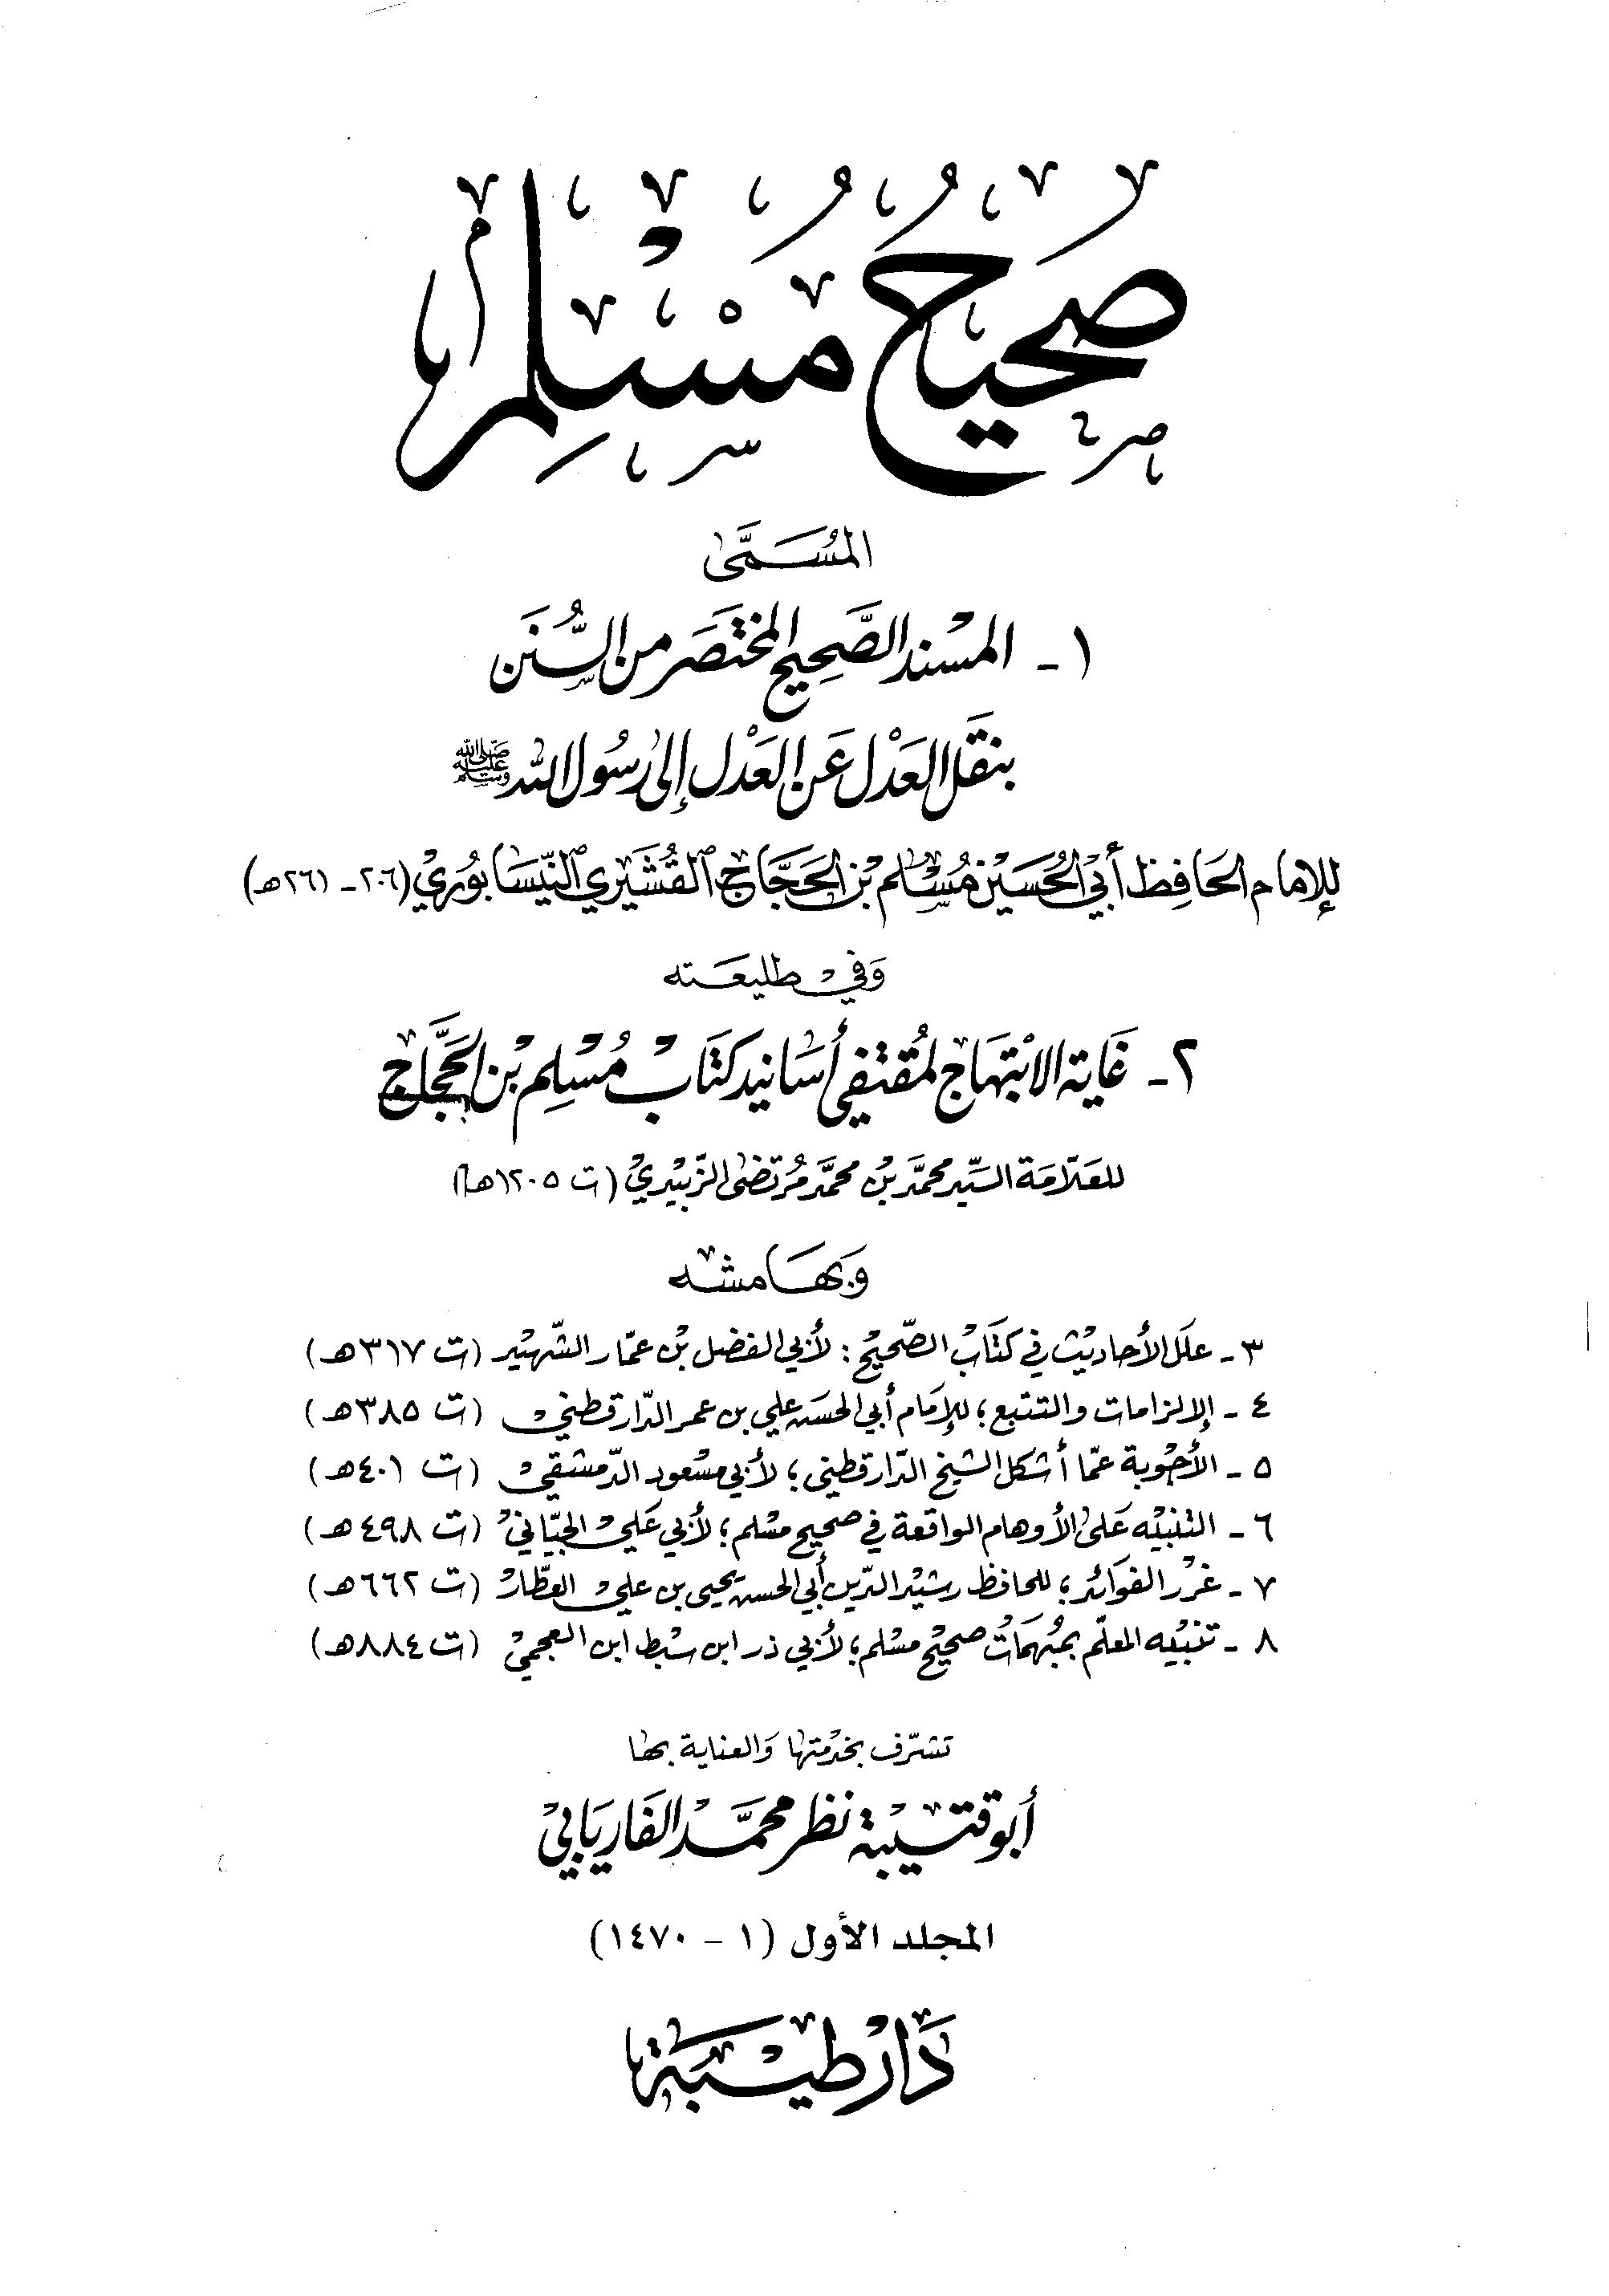 صحيح مسلم
المُسَمَّى
١ - المسْند الصَّحِيح المختصَر من السُّنَن
بنقَل العَدْل عَن العَدْل إلى رسُول الله ﷺ
للإمام الحَافِظ أبي الحُسَين مُسْلم بن الحَجَّاج القُشَيري النّيسَابُوري (٢٠٦ - ٢٦١هـ)
وَفي طليعَته
٢ - غَاية الابْتهَاج لمُقتفي أسَانيد كتَابْ مُسْلِم بْن الحَجَّاج
للعَلّامَة السَّيّد محمَّد بْن محمَّد مُرتضَى الزّبيْديْ (ت ١٢٠٥هـ)
وبهَامشه
٣ - علَل الأحاديْث في كتَابْ الصّحيْح: لأبي الفضل بْن عمّار الشّهيْد (ت ٣١٧هـ)
٤ - الإلزامات والتتبع؛ للإمَام أبي الحسَن علي بن عمر الدّارقطنيْ (ت ٣٨٥هـ)
٥ - الأجْوبة عمّا أشكل الشيخ الدّارقطني؛ لأبي مسْعود الدّمشقيْ (ت ٤٠١هـ)
٦ - التنبيْه عَلى الأوهام الواقعة في صحيح مسْلم؛ لأبي عَليْ الجيّانيْ (ت ٤٩٨هـ)
٧ - غرْر الفوَائد؛ للحافظ رشيْد الدّين أبي الحسن يحيى بن عليْ العطّارْ (ت ٦٦٢هـ)
٨ - تنبيْه المعلّم بمُبهمَاتْ صحيْح مسْلم؛ لأبي ذر ابن سبْط ابن العجميْ (ت ٨٨٤هـ)
تشرّف بخدْمتها وَالعناية بها
أبو قتيْبة نظر محمَّد الفَاريَابيْ
المجلد الأول (١ - ١٤٧٠)
دَارْ طيْبَة